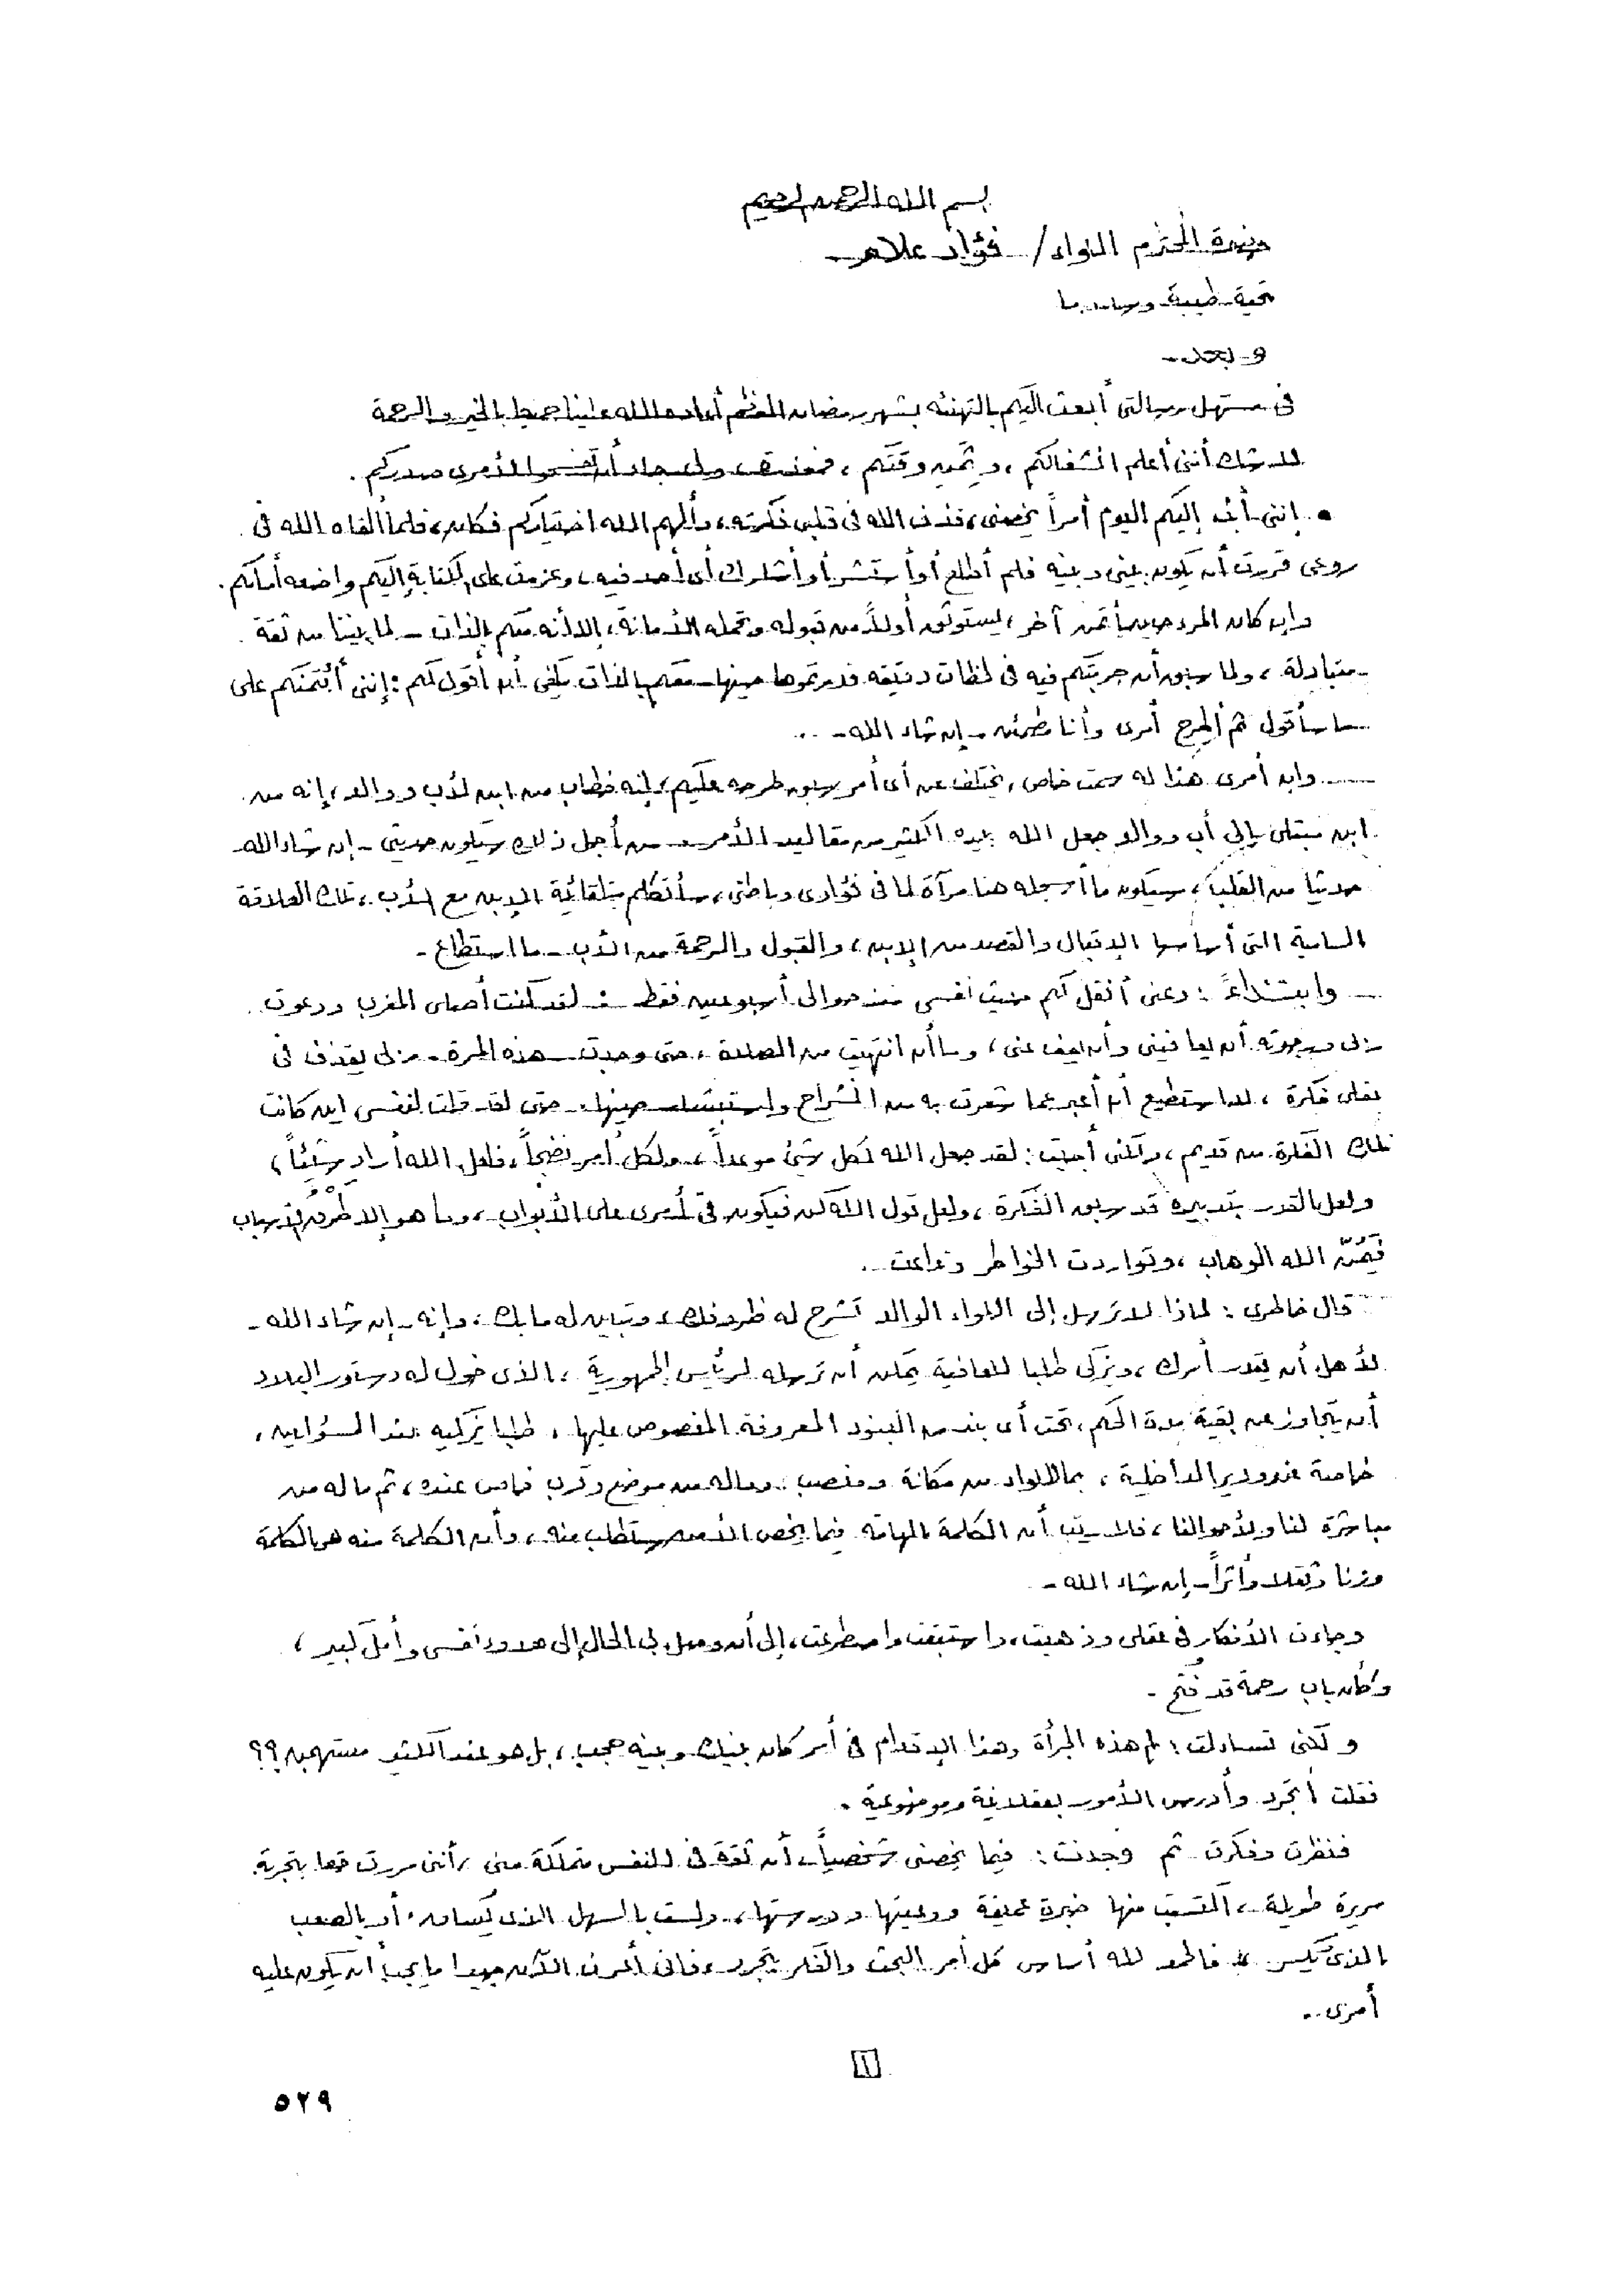 بسم الله الرحمن الرحيم
حضرة المحترم اللواء / فؤاد علام
تحية طيبة وسلاما
وبعد
فى مستهل رسالتى أبعث اليكم بالتهنئه بشهر رمضان المعظم أعاده الله علينا جميعا بالخير والرحمة
لا شك أننى أعلم انشغالكم ، وثمين وقتكم ، فمعذرة ، ولى رجاء أن تفسحوا لأمرى صدركم .
• إننى أبث إليكم اليوم أمراً يخصنى ، قذف الله فى قلبى فكرته ، وألهم الله اختياركم فكان ، فلما ألقاه الله فى
روعى قررت أن يكون بينى وبينه فلم أطلع أو أستشر أو أشارك أى أحد فيه ، وعزمت على الكتابة إليكم واضعه أمامكم .
وإن كان المرء حين يأتمن آخر ، ليستوثق أولاً من قبوله وتحمله الأمانة ، إلا أنه معكم بالذات - لما بيننا من ثقة
متبادلة ، ولما سبق أن جربتكم فيه فى لحظات دقيقه قدرتموها حينها - معكم بالذات يكفى أن أقول لكم : إننى أئتمنكم على
ما سأقول ثم أطرح أمرى وأنا مطمئن - إن شاء الله - ..
وإن أمرى هذا له سمت خاص ، يختلف عن أى أمر سبق طرحه عليكم ، إنه خطاب من ابن لأب ووالد ، إنه من
ابن مبتلى إلى أب ووالد جعل الله بيده الكثير من مقاليد الأمر ، من أجل ذلك سيكون حديثى - إن شاء الله -
حديثا من القلب ، سيكون ما أسجله هنا مرآة لما فى فؤادى وباطنى ، سأتكلم بتلقائية الابن مع الأب ، تلك العلاقة
السامية التى أساسها الإقبال والقصد من الابن ، والقبول والرحمة من الأب - ما استطاع -
وابتداءً : دعنى أنقل لكم حديث نفسى منذ حوالى أسبوعين فقط : لقد كنت أصلى المغرب ودعوت
ربى ورجوته أن يعافينى وأن يعفو عنى ، وما أن انتهيت من الصلاة ، حتى وجدت هذه المرة ربى يقذف فى
عقلى فكرة ، لا استطيع أن أعبر عما شعرت به من انشراح واستبشار حينها ، حتى لقد قلت لنفسى أين كانت
تلك الفكرة من قديم ، ولكنى أجبت : لقد جعل الله لكل شئ موعداً ، ولكل أمر نضجاً ، فلعل الله أراد شيئاً ،
ولعل القدر بتدبيره قد سبق الفكرة ، ولعل قول الله كن فيكون فىّ أمرى على الأبواب ، وما هو إلا طَرْقُ الأسباب
فيَمُنّ الله الوهاب ، وتواردت الخواطر وتداعت ..
قال خاطرى : لماذا لا ترسل إلى اللواء الوالد تشرح له ظروفك ، وتباين له ما بك ، وإنه - إن شاء الله -
لأهل أن يقدر أمرك ، ويزكى طلبا للعافية يمكن أن ترسله لرئيس الجمهورية ، الذى خول له دستور البلاد
أن يتجاوز عن بقية مدة الحكم ، تحت أى بند من البنود المعروفة المنصوص عليها ، طلبا يزكيه عند المسؤلين ،
خاصة عند وزير الداخلية ، بما للواء من مكانة ومنصب ، وماله من موضع وقرب خاص عنده ، ثم ما له من
مباشرة لنا ولأحوالنا ، فلا ريب أن الكلمة الهامة فيما يخص الأمر ستطلب منه ، وأن الكلمة منه هى الكلمة
وزنا وثقلا وأثراً - إن شاء الله -
وجاءت الأفكار فى عقلى وذهبت ، واستبقت واصطرعت ، إلى أن وصل بى الحال إلى هدوء نفسى وأمل كبير ،
وكأن باب رحمة قد فُتح -
ولكنى تساءلت : لم هذه الجرأة وهذا الإقدام فى أمر كان بينك وبينه حجب ، بل هو عند الكثير مستهجن ؟؟
فقلت أتجرد وأدرس الأمور بعقلانية وموضوعية .
فنظرت وفكرت ثم وجدت : فيما يخصنى شخصياً ، أن ثقة فى النفس متملكة منى ، أننى مررت حقا بتجربة
مريرة طويلة ، اكتسبت منها خبرة عميقة ووعيتها ودرستها ، ولست بالسهل الذى يُساق ، أو بالصعب
الذى يُكسر ، فالحمد لله أساس كل أمر البحث والفكر بتجرد ، فانى أعرف الآن جيدا ما يجب أن يكون عليه
أمرى ..
١
٥٢٩